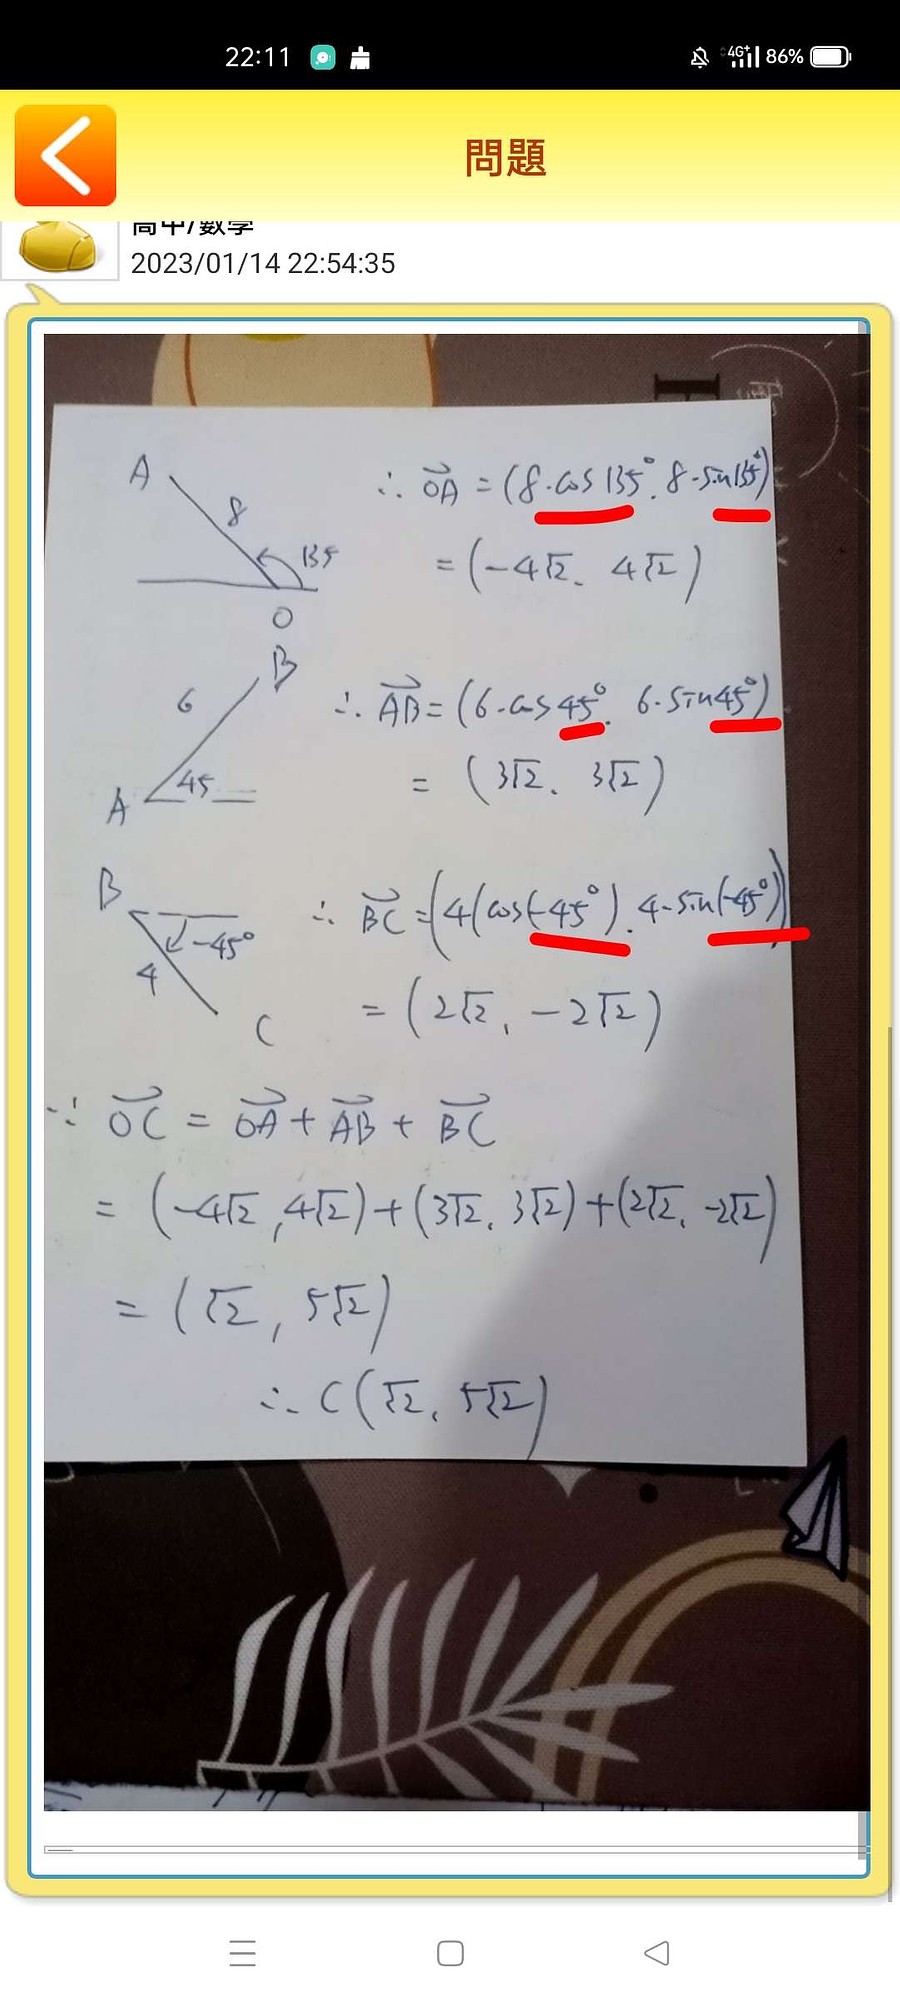 22:11 4G+ 86%
問題
高中/數學
2023/01/14 22:54:35
A
8
135
O
∴ OA = (8·cos135°, 8·sin135°)
= (-4√2, 4√2)
B
6
45
A
∴ AB = (6·cos45°, 6·sin45°)
= (3√2, 3√2)
B
-45°
4
C
∴ BC = (4(cos(-45°), 4·sin(-45°))
= (2√2, -2√2)
∵ OC = OA + AB + BC
= (-4√2, 4√2) + (3√2, 3√2) + (2√2, -2√2)
= (√2, 5√2)
∴ C(√2, 5√2)